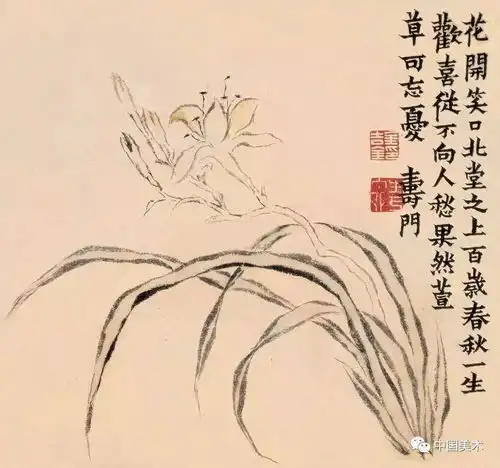 花開笑口北堂之上百歲春秋一生
歡喜從不向人愁果然萱
草可忘憂 壽門
中国美术